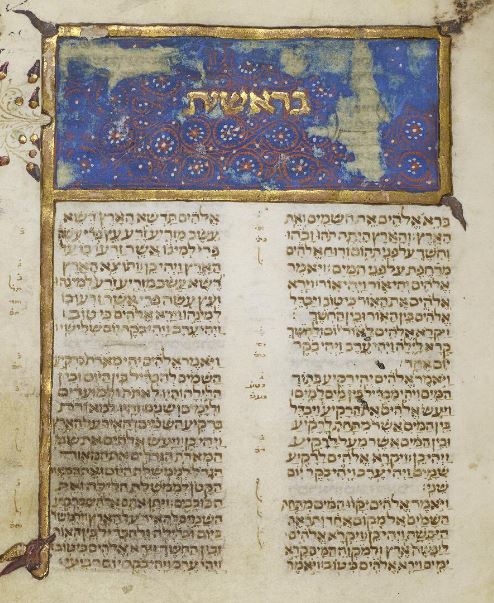 בראשית
ברא אלהים את השמים ואת
הארץ והארץ היתה תהו ובהו
וחשך על פני תהום ורוח אלהים
מרחפת על פני המים ויאמר
אלהים יהי אור ויהי אור וירא
אלהים את האור כי טוב ויבדל
אלהים בין האור ובין החשך
ויקרא אלהים לאור יום ולחשך
קרא לילה ויהי ערב ויהי בקר
יום אחד
ויאמר אלהים יהי רקיע בתוך
המים ויהי מבדיל בין מים למים
ויעש אלהים את הרקיע ויבדל
בין המים אשר מתחת לרקיע
ובין המים אשר מעל לרקיע
ויהי כן ויקרא אלהים לרקיע
שמים ויהי ערב ויהי בקר יום
שני
ויאמר אלהים יקוו המים מתחת
השמים אל מקום אחד ותראה
היבשה ויהי כן ויקרא אלהים
ליבשה ארץ ולמקוה המים קרא
ימים וירא אלהים כי טוב ויאמר
אלהים תדשא הארץ דשא
עשב מזריע זרע עץ פרי עשה
פרי למינו אשר זרעו בו על
הארץ ויהי כן ותוצא הארץ
דשא עשב מזריע זרע למינהו
ועץ עשה פרי אשר זרעו בו
למינהו וירא אלהים כי טוב
ויהי ערב ויהי בקר יום שלישי
ויאמר אלהים יהי מארת ברקיע
השמים להבדיל בין היום ובין
הלילה והיו לאתת ולמועדים
ולימים ושנים והיו למאורת
ברקיע השמים להאיר על הארץ
ויהי כן ויעש אלהים את שני
המארת הגדלים את המאור
הגדל לממשלת היום ואת המאור
הקטן לממשלת הלילה ואת
הכוכבים ויתן אתם אלהים ברקיע
השמים להאיר על הארץ ולמשל
ביום ובלילה ולהבדיל בין האור
ובין החשך וירא אלהים כי טוב
ויהי ערב ויהי בקר יום רביעי